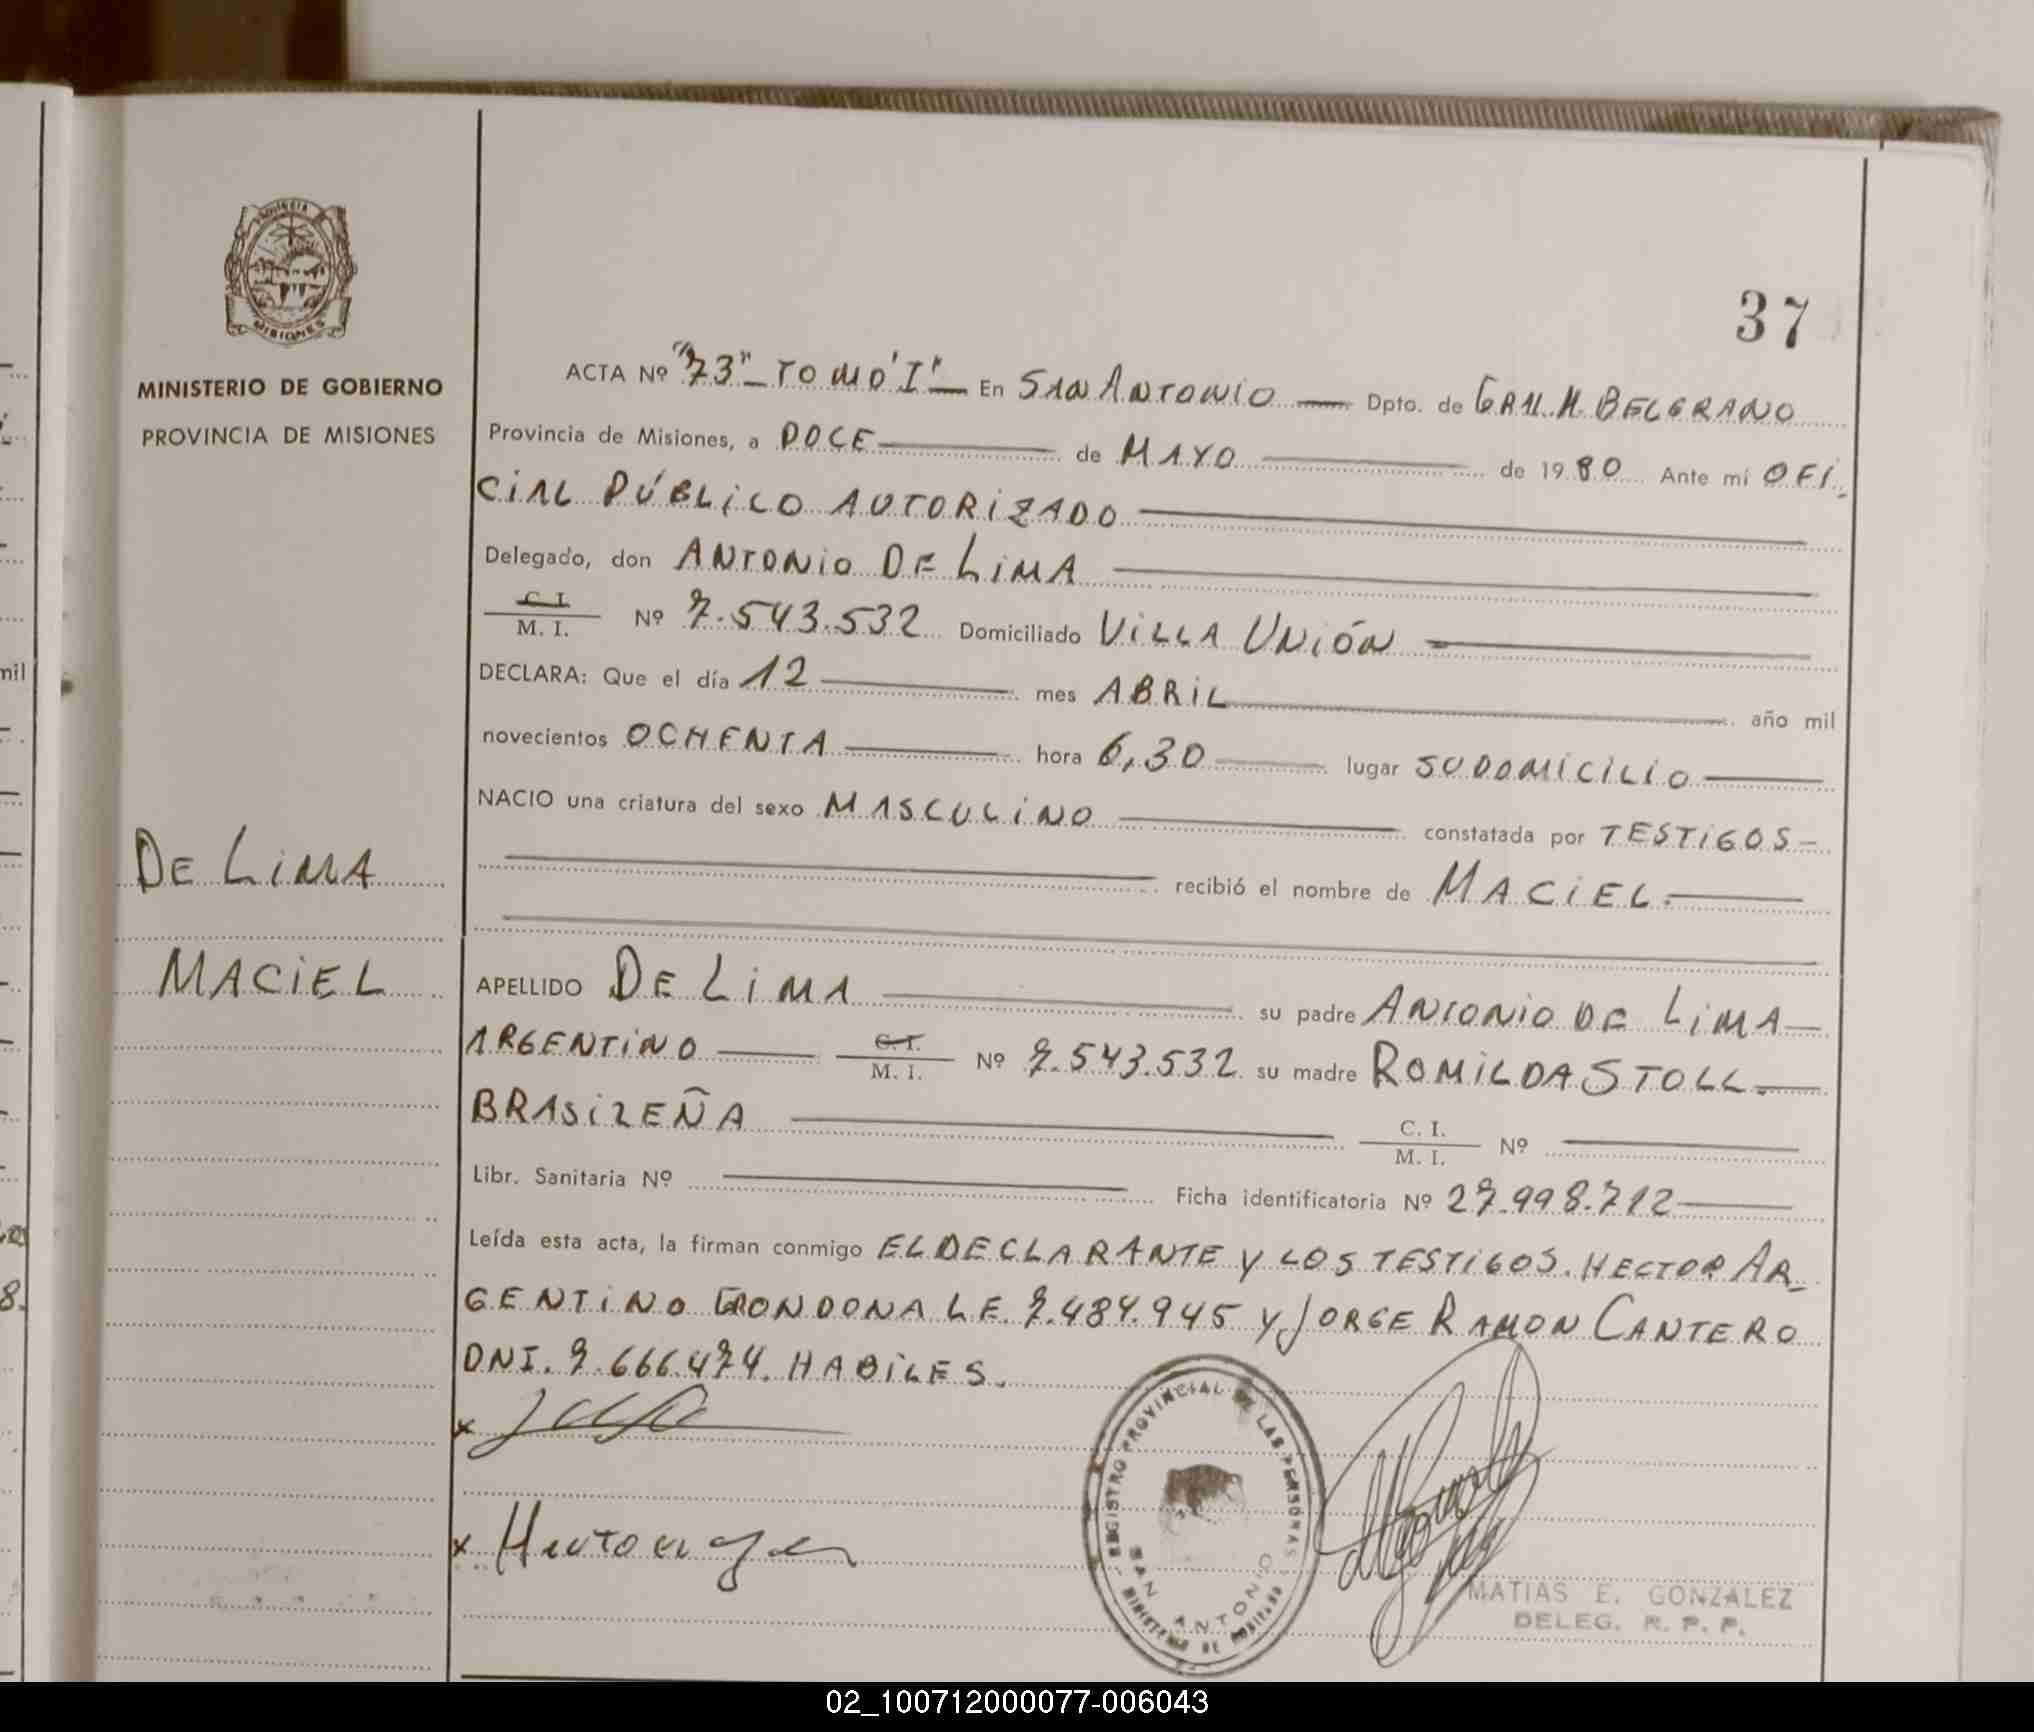 PROVINCIA
MISIONES
MINISTERIO DE GOBIERNO
PROVINCIA DE MISIONES
37
ACTA Nº "73" TOMO "I" En SAN ANTONIO Dpto. de GRAL. M. BELGRANO
Provincia de Misiones, a DOCE de MAYO de 1980 Ante mí OFI-
CIAL PÚBLICO AUTORIZADO
Delegado, don ANTONIO DE LIMA
C. I.
M. I. Nº 7.543.532 Domiciliado VILLA UNIÓN
DECLARA: Que el día 12 mes ABRIL año mil
novecientos OCHENTA hora 6,30 lugar SU DOMICILIO
NACIO una criatura del sexo MASCULINO constatada por TESTIGOS-
recibió el nombre de MACIEL.
DE LIMA
MACIEL
APELLIDO DE LIMA su padre ANTONIO DE LIMA
ARGENTINO C. I. M. I. Nº 7.543.532 su madre ROMILDA STOLL.
BRASILEÑA C. I. M. I. Nº
Libr. Sanitaria Nº Ficha identificatoria Nº 27.998.712
Leída esta acta, la firman conmigo EL DECLARANTE Y LOS TESTIGOS. HECTOR AR-
GENTINO GRONDONA L.E. 7.484.945 Y JORGE RAMON CANTERO
DNI. 7.666.474. HABILES.
x
x
REGISTRO PROVINCIAL DE LAS PERSONAS
SAN ANTONIO
MINISTERIO DE GOBIERNO
MATIAS E. GONZALEZ
DELEG. R. P. P.
mil
8.
02_100712000077-006043